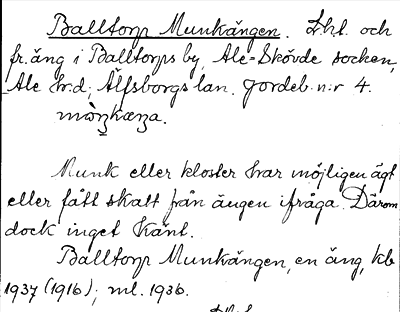 Balltorp Munkängen. Skl. och
fr. äng i Balltorps by, Ale-Skövde socken,
Ale hrd, Älfsborgs län. Jordeb. n:r 4.
Munk eller kloster har möjligen ägt
eller fått skatt från ängen ifråga. Därom
dock inget känt.
Balltorp Munkängen, en äng, kb
1937 (1916); ml. 1936.